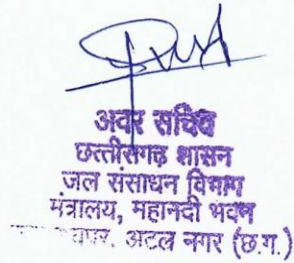 अवर सचिव
छत्तीसगढ़ शासन
जल संसाधन विभाग
मंत्रालय, महानदी भवन
अटल नगर (छ.ग.)